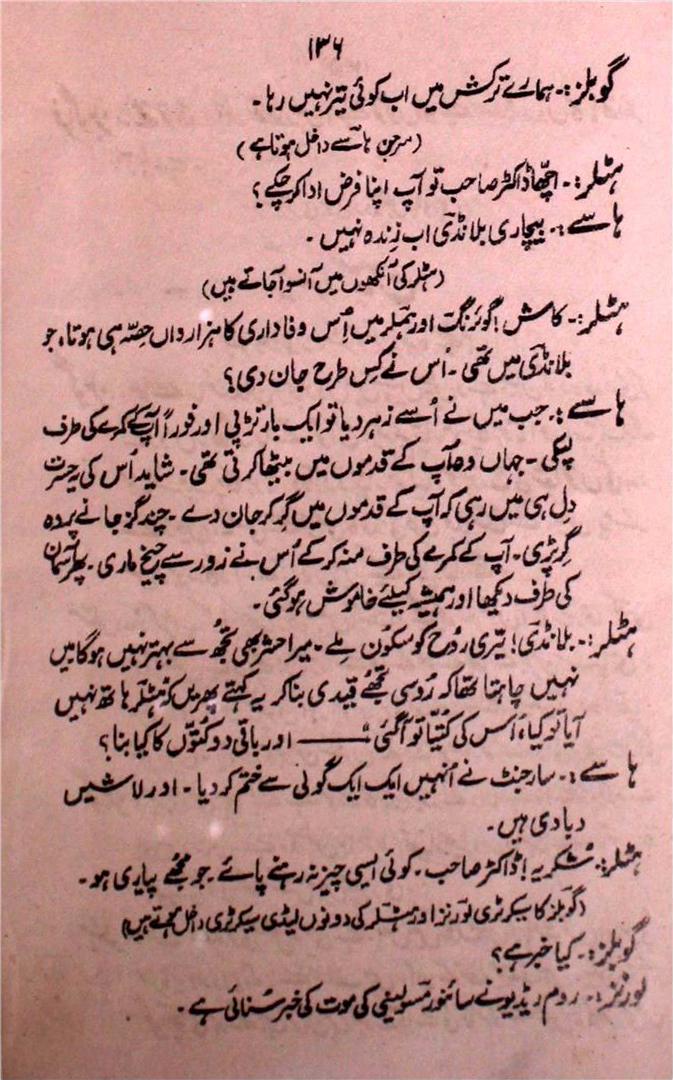 ۱۳۶
گوبلز:۔ ہمارے ترکش میں اب کوئی تیر نہیں رہا۔
(سرجن ہاسے داخل ہوتا ہے)
ہٹلر:۔ اچھا ڈاکٹر صاحب تو آپ اپنا فرض ادا کر چکے؟
ہاسے:۔ بیچاری بلانڈی اب زندہ نہیں۔
(ہٹلر کی آنکھوں میں آنسو آ جاتے ہیں)
ہٹلر:۔ کاش! گوئرنگ اور ہملر میں اس وفاداری کا ہزارواں حصہ ہی ہوتا، جو
بلانڈی میں تھی۔ اُس نے کِس طرح جان دی؟
ہاسے:۔ جب میں نے اُسے زہر دیا تو ایک بار تڑپی اور فوراً آپ کے کمرے کی طرف
لپکی۔ جہاں وہ آپ کے قدموں میں بیٹھا کرتی تھی۔ شاید اُس کی یہ حسرت
دِل ہی میں رہی کہ آپ کے قدموں میں گِر کر جان دے۔ چند گز جانے پر وہ
گِر پڑی۔ آپ کے کمرے کی طرف منہ کر کے اُس نے زور سے چیخ ماری۔ پھر آسمان
کی طرف دیکھا اور ہمیشہ کیلئے خاموش ہو گئی۔
ہٹلر:۔ بلانڈی! تیری رُوح کو سکُون مِلے۔ میرا حشر بھی تجھ سے بہتر نہیں ہوگا میں
نہیں چاہتا تھا کہ رُوسی تجھے قیدی بنا کر یہ کہتے پھریں کہ ہٹلر ہاتھ نہیں
آیا تو کیا، اُس کی کُتیا تو آ گئی" ـــــــ اور باقی دو کتّوں کا کیا بنا؟
ہاسے:۔ سارجنٹ نے اُنہیں ایک ایک گولی سے ختم کر دیا۔ اور لاشیں
دبا دی ہیں۔
ہٹلر:۔ شکریہ! ڈاکٹر صاحب۔ کوئی ایسی چیز نہ رہنے پائے۔ جو مجھے پیاری ہو۔
(گوبلز کا سیکرٹری لورنز اور ہٹلر کی دونوں لیڈی سیکرٹری داخل ہوتے ہیں)
گوبلز:۔ کیا خبر ہے؟
لورنز:۔ روم ریڈیو نے سائنور مسولینی کی موت کی خبر سُنائی ہے۔